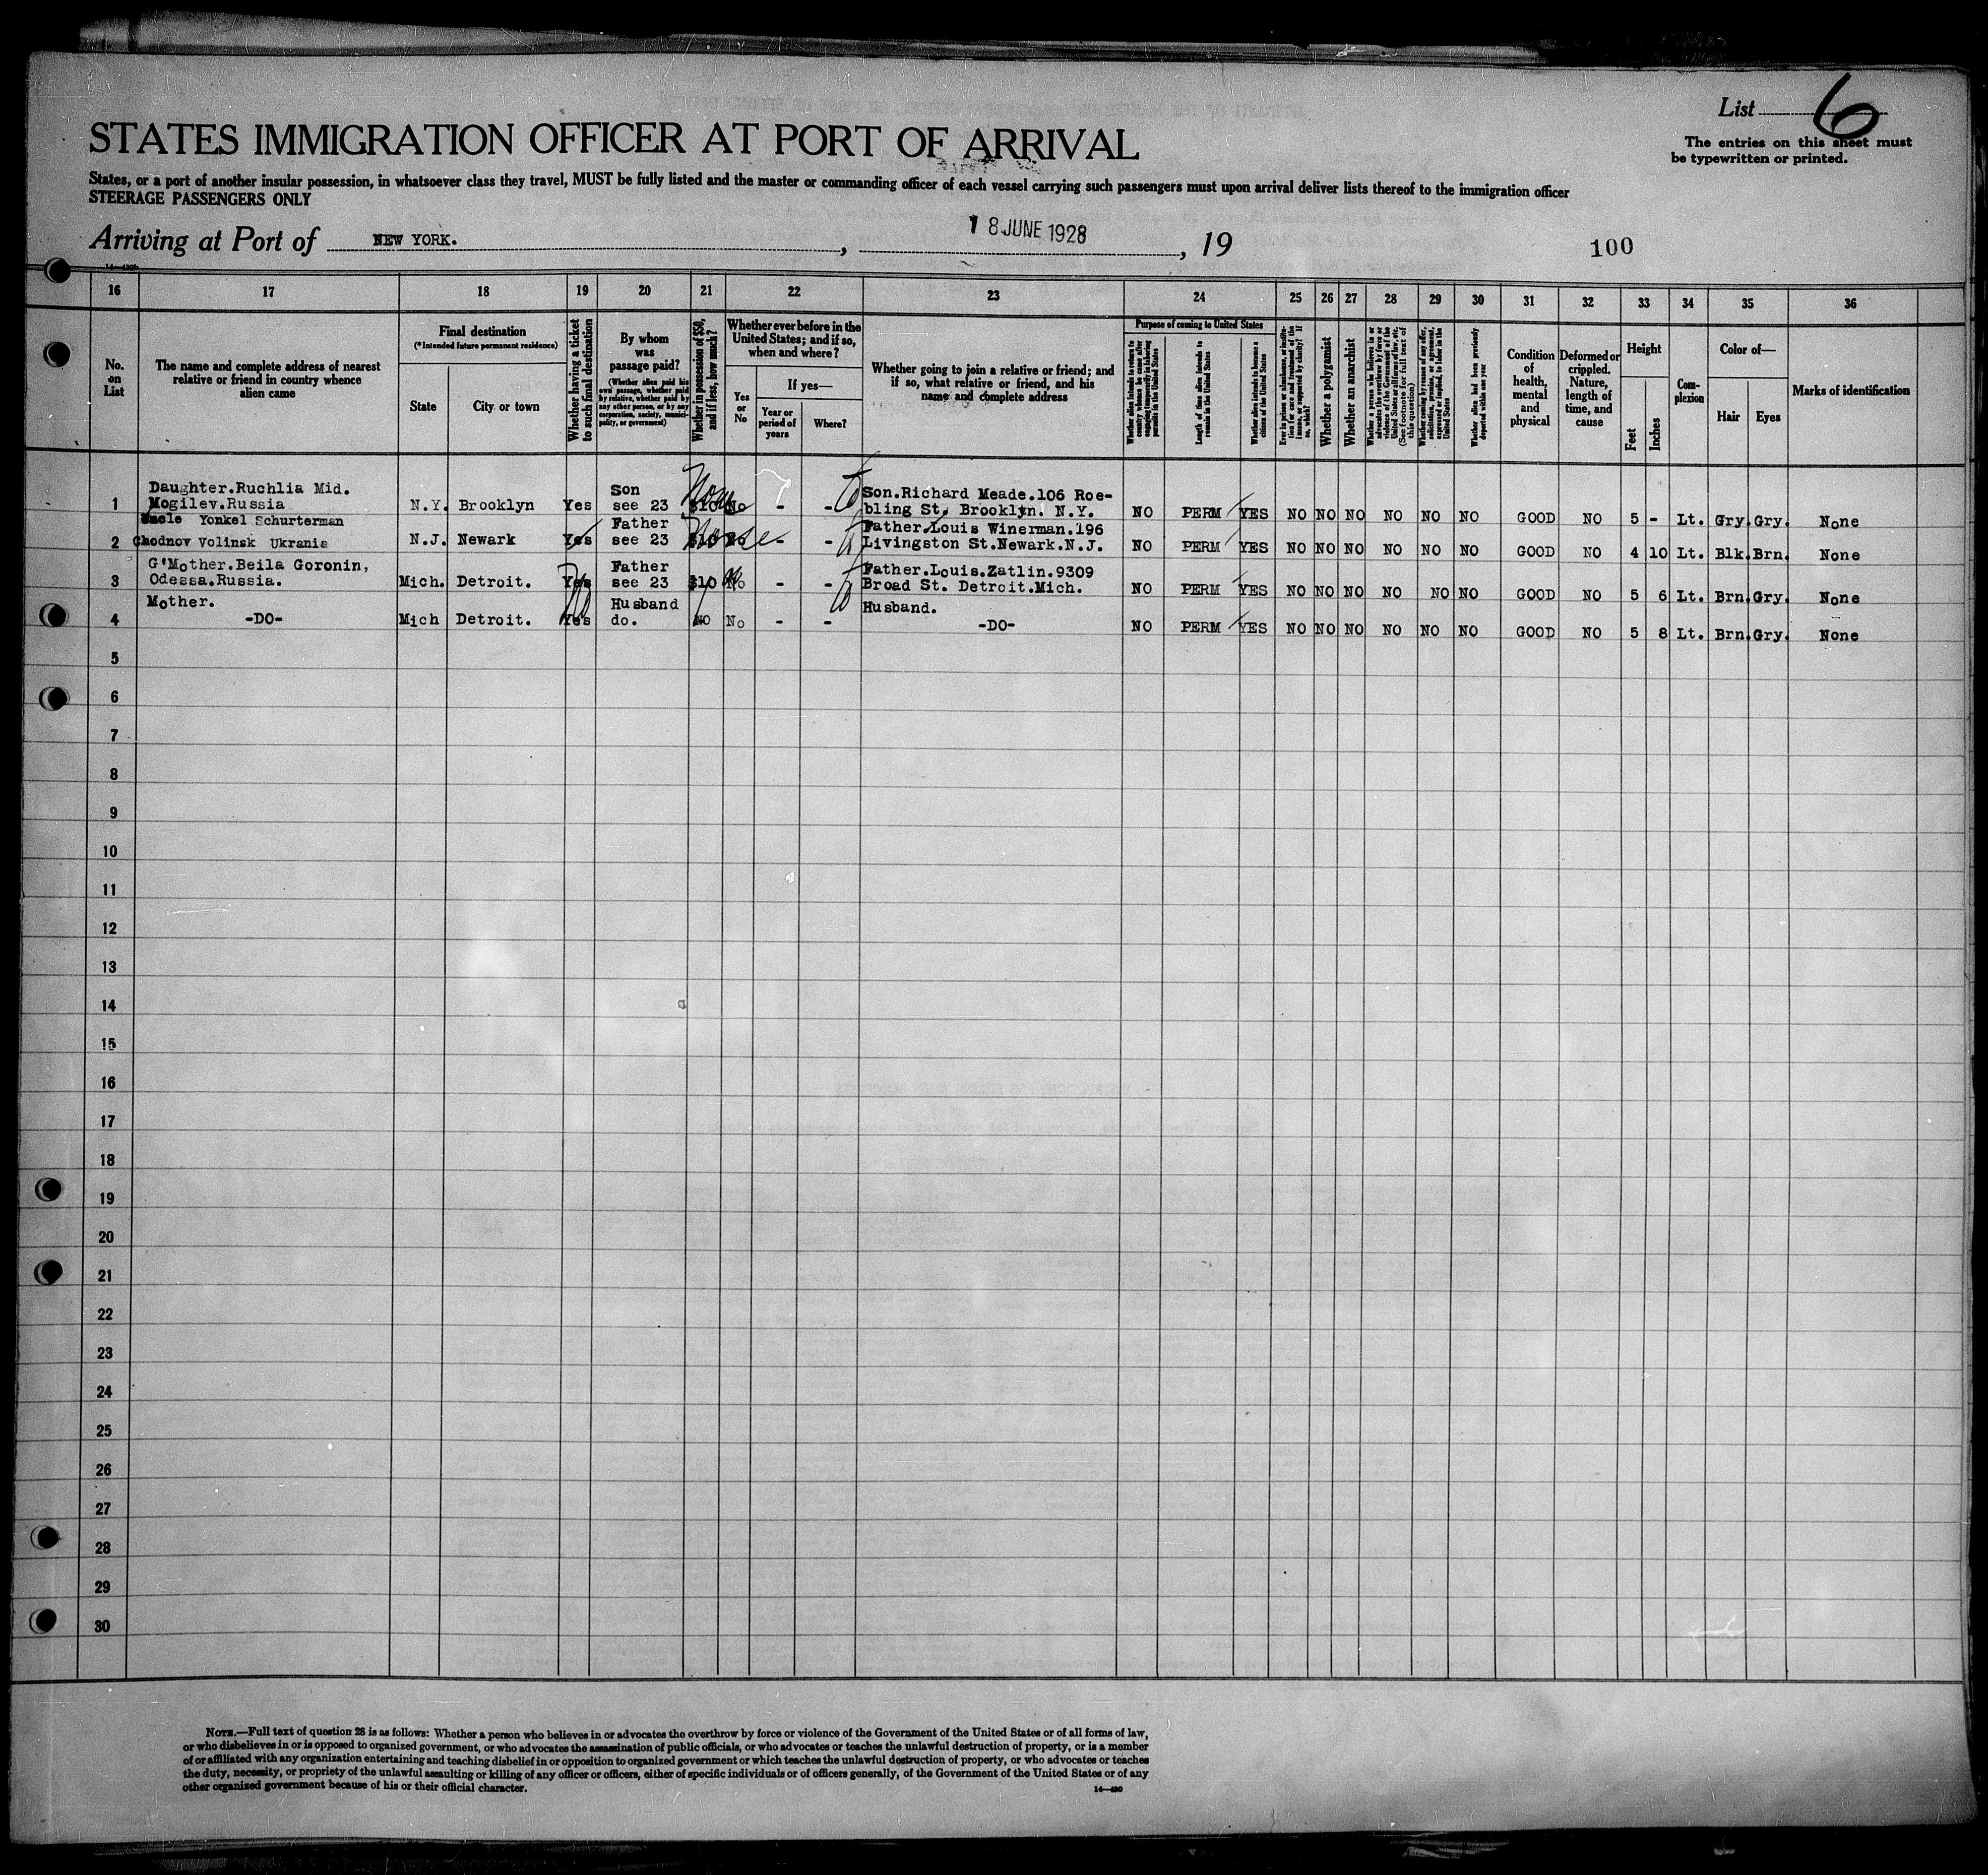 List 6
The entries on this sheet must
be typewritten or printed.
STATES IMMIGRATION OFFICER AT PORT OF ARRIVAL
States, or a port of another insular possession, in whatsoever class they travel, MUST be fully listed and the master or commanding officer of each vessel carrying such passengers must upon arrival deliver lists thereof to the immigration officer
STEERAGE PASSENGERS ONLY
Arriving at Port of NEW YORK. , 18 JUNE 1928 , 19
100
16 17 18 19 20 21 22 23 24 25 26 27 28 29 30 31 32 33 34 35 36
No.
on
List
The name and complete address of nearest
relative or friend in country whence
alien came
Final destination
(*Intended future permanent residence)
State
City or town
Whether having a ticket
to such final destination
By whom
was
passage paid?
(Whether alien paid his
own passage, whether paid
by relative, whether paid by
any other person, or by any
corporation, society, munici-
pality, or government)
Whether in possession of $50,
and if less, how much?
Whether ever before in the
United States; and if so,
when and where?
Yes
or
No
If yes—
Year or
period of
years
Where?
Whether going to join a relative or friend; and
if so, what relative or friend, and his
name and complete address
Purpose of coming to United States
Whether alien intends to return to
country whence he came after
engaging temporarily in laboring
pursuits in the United States
Length of time alien intends to
remain in the United States
Whether alien intends to become a
citizen of the United States
Ever in prison or almshouse, or institu-
tion for care and treatment of the
insane, or supported by charity? If
so, which?
Whether a polygamist
Whether an anarchist
Whether a person who believes in or
advocates the overthrow by force or
violence of the Government of the
United States or all forms of law, etc.
(See footnote for full text of
this question)
Whether coming by reason of any offer,
solicitation, promise, or agreement,
expressed or implied, to labor in the
United States
Whether alien had been previously
deported within one year
Condition
of
health,
mental
and
physical
Deformed or
crippled.
Nature,
length of
time, and
cause
Height
Feet
Inches
Com-
plexion
Color of—
Hair
Eyes
Marks of identification
Daughter.Ruchlia Mid.
1 Mogilev.Russia N.Y. Brooklyn Yes Son see 23 $10 None No - - Son.Richard Meade.106 Roe-
bling St, Brooklyn. N.Y. NO PERM YES NO NO NO NO NO NO GOOD NO 5 - Lt. Gry. Gry. None
Uncle Yonkel Schurterman
2 Chodnov Volinsk Ukrania N.J. Newark Yes Father see 23 $10 None No - - Father.Louis Winerman.196
Livingston St.Newark.N.J. NO PERM YES NO NO NO NO NO NO GOOD NO 4 10 Lt. Blk. Brn. None
G'Mother.Beila Goronin,
3 Odessa.Russia. Mich. Detroit. Yes Father see 23 $10 No - - Father.Louis.Zatlin.9309
Broad St. Detroit.Mich. NO PERM YES NO NO NO NO NO NO GOOD NO 5 6 Lt. Brn. Gry. None
Mother.
4 -DO- Mich Detroit. Yes Husband do. NO No - - Husband.
-DO- NO PERM YES NO NO NO NO NO NO GOOD NO 5 8 Lt. Brn. Gry. None
5
6
7
8
9
10
11
12
13
14
15
16
17
18
19
20
21
22
23
24
25
26
27
28
29
30
NOTE.—Full text of question 28 is as follows: Whether a person who believes in or advocates the overthrow by force or violence of the Government of the United States or of all forms of law,
or who disbelieves in or is opposed to organized government, or who advocates the assassination of public officials, or who advocates or teaches the unlawful destruction of property, or is a member
of or affiliated with any organization entertaining and teaching disbelief in or opposition to organized government or which teaches the unlawful destruction of property, or who advocates or teaches
the duty, necessity, or propriety of the unlawful assaulting or killing of any officer or officers, either of specific individuals or of officers generally, of the Government of the United States or of any
other organized government because of his or their official character.
14—430